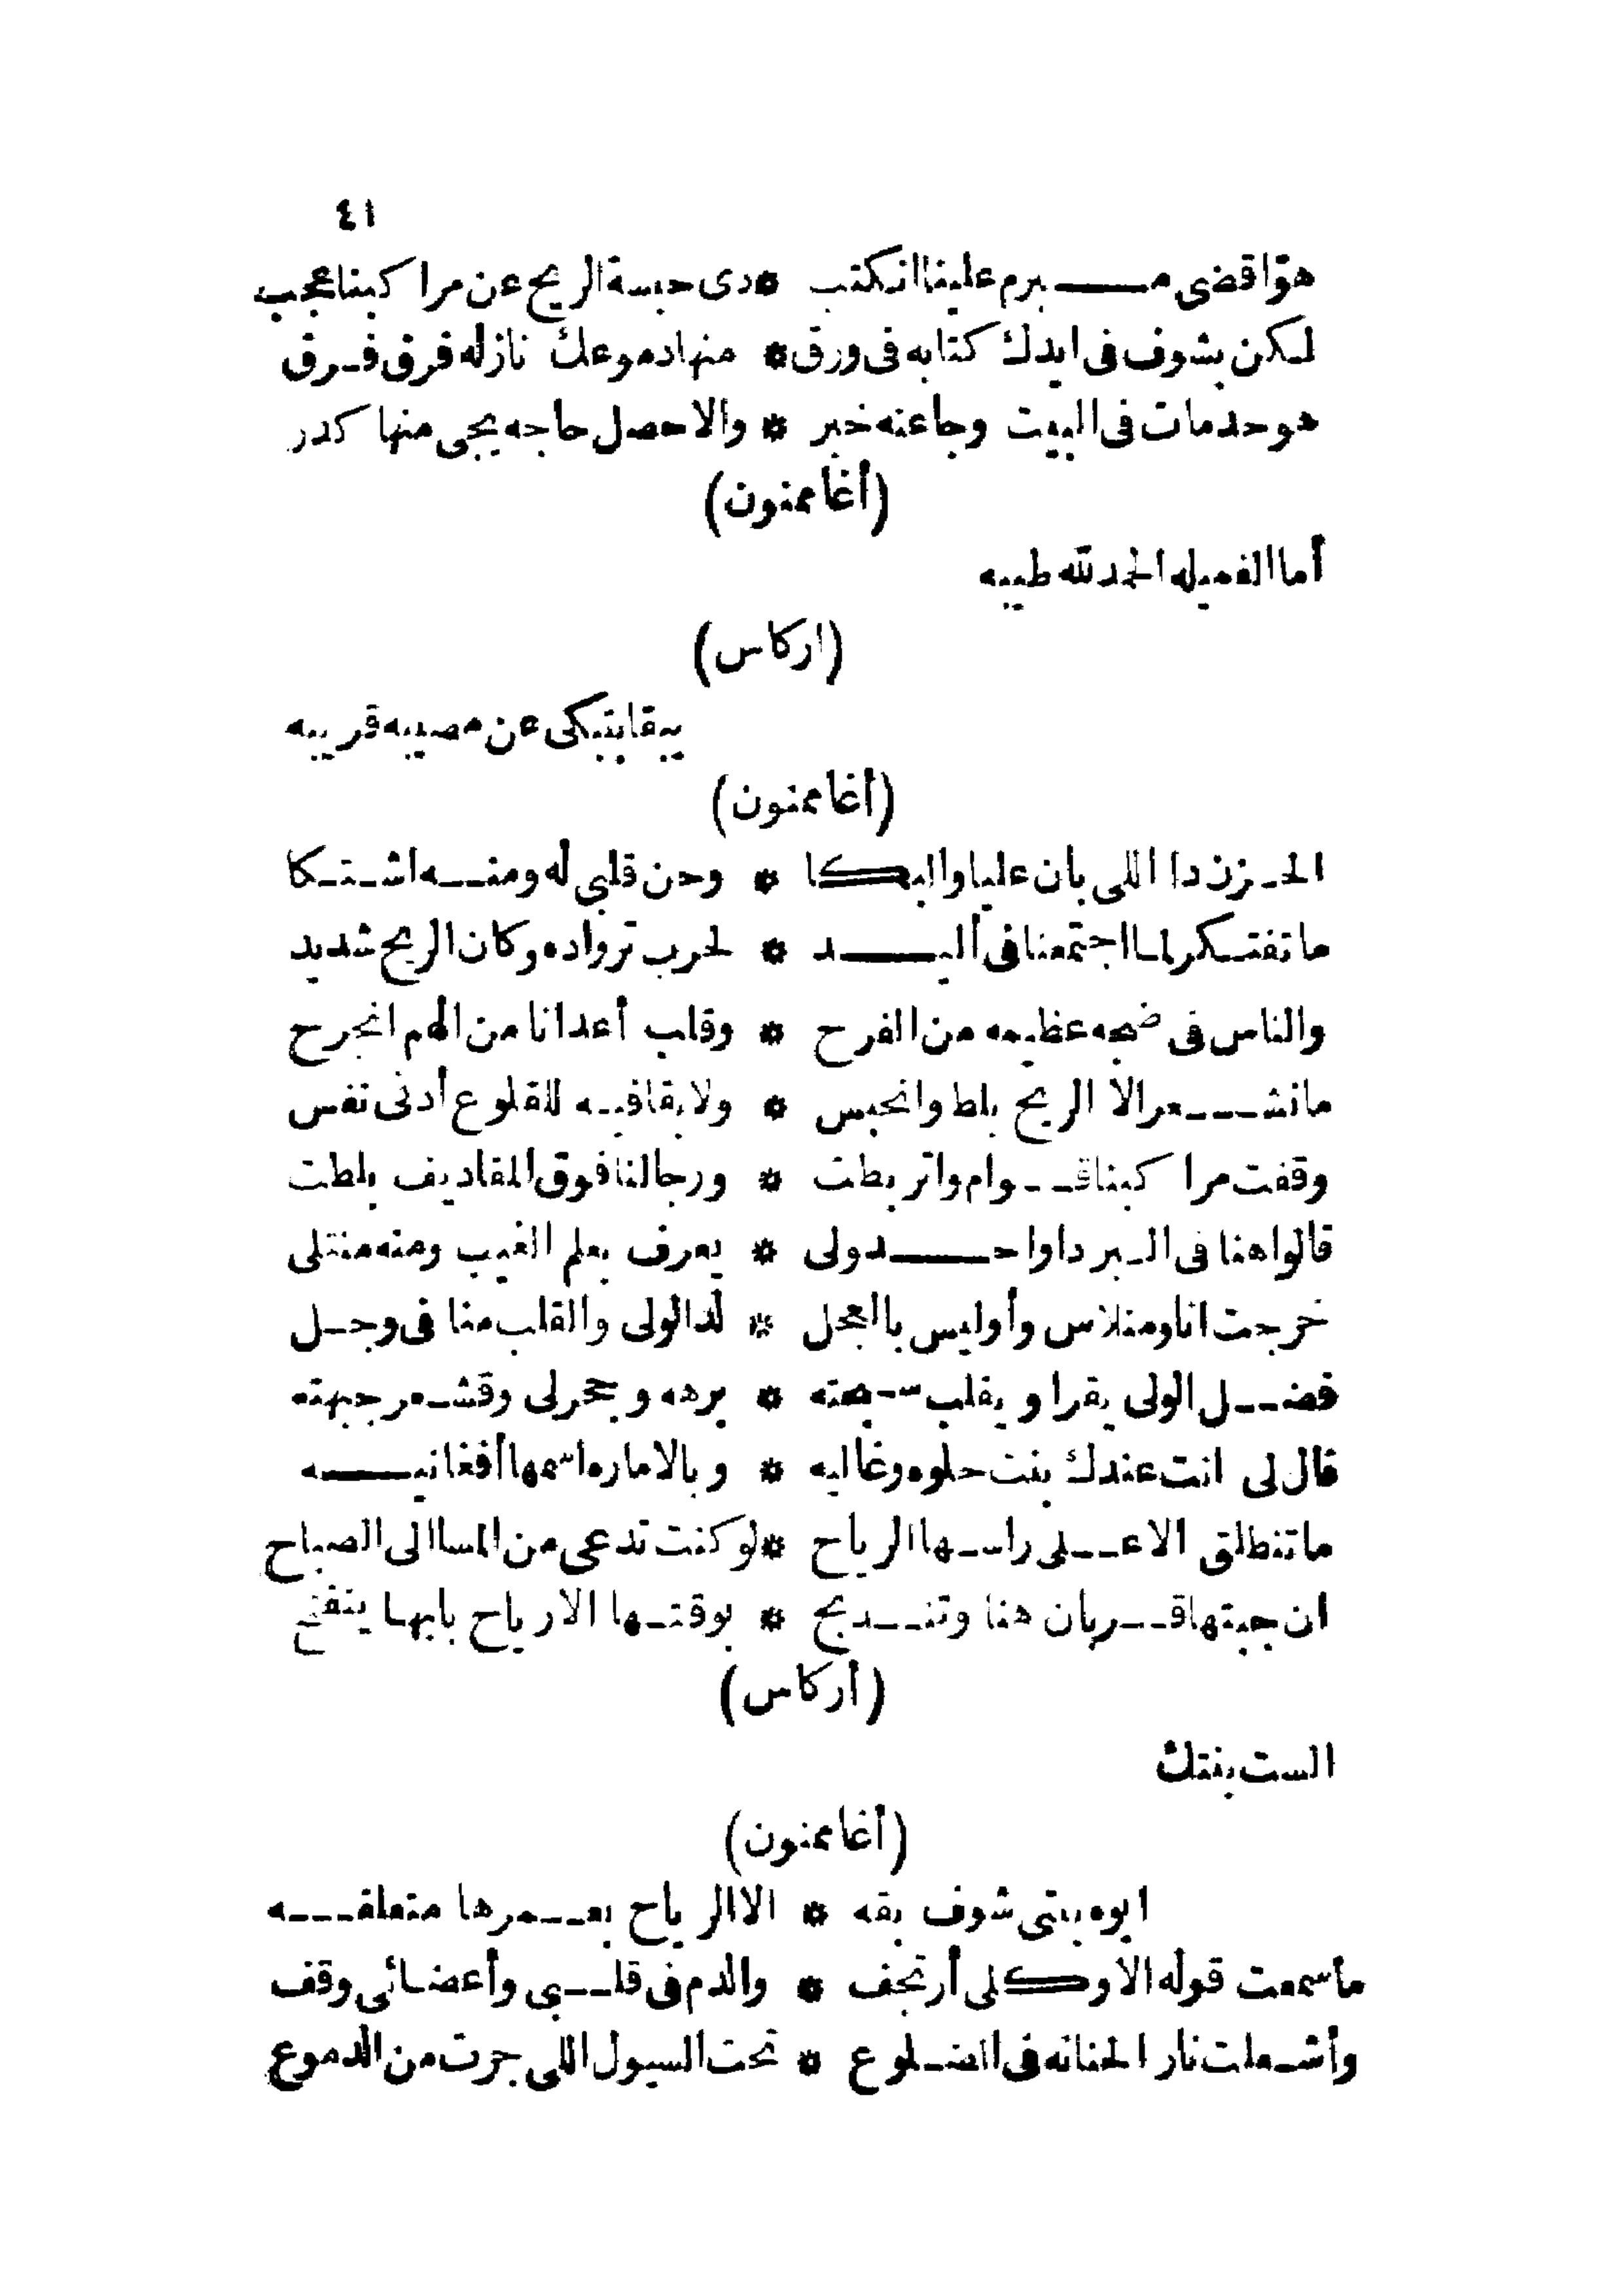 ٤١
هوّا قضى مبرم علينا انكتب * دى حبسة الريح عن مراكبنا عجب
لكن بشوف فى ايدك كتابه فى ورق * منها دموعك نازله فرق فرق
هو حد مات فى البيت وجا عنه خبر * والا حصل حاجه يجى منها كدر
(أغاممنون)
أما الفميله الحمد لله طيبه
(اركاس)
يبقا بتبكى عن مصيبه قريبه
(أغاممنون)
الحزن دا اللى بان عليا والبكا * وحن قلبى له ومنه اشتكا
ما تفتكر لما اجتمعنا فى أليد * لحرب ترواده وكان الريح شديد
والناس فى ضجه عظيمه من الفرح * وقلب أعدانا من الهم انجرح
ما نشعر الا الريح بلط وانحبس * ولا بقا فيه للقلوع أدنى نفس
وقفت مراكبنا قوام واتربطت * ورجالنا فوق المقاديف بلطت
قالوا هنا فى البر دا واحد ولى * يعرف بعلم الغيب ومنه منتلى
خرجت انا ومنلاس وأوليس بالعجل * لدا الولى والقلب منا فى وجل
فضل الولى يقرا ويقلب سبحته * برهه وبحرلى وقشعر جبهته
قال لى انت عندك بنت حلوه وغاليه * وبالاماره اسمها أفغانيه
ما تنطلق الا على راسها الرياح * لو كنت تدعى من المسا الى الصباح
ان جبتها قربان هنا وتندبح * بوقتها الارياح بابها ينفتح
(أركاس)
الست بنتك
(أغاممنون)
ايوه بنتى شوف بقه * الا الرياح بعمرها متعلقه
ما سمعت قوله الا وكلى أرتجف * والدم فى قلبى وأعضائى وقف
وأشعلت نار الحنانه فى الضلوع * تحت السيول اللى جرت من الدموع